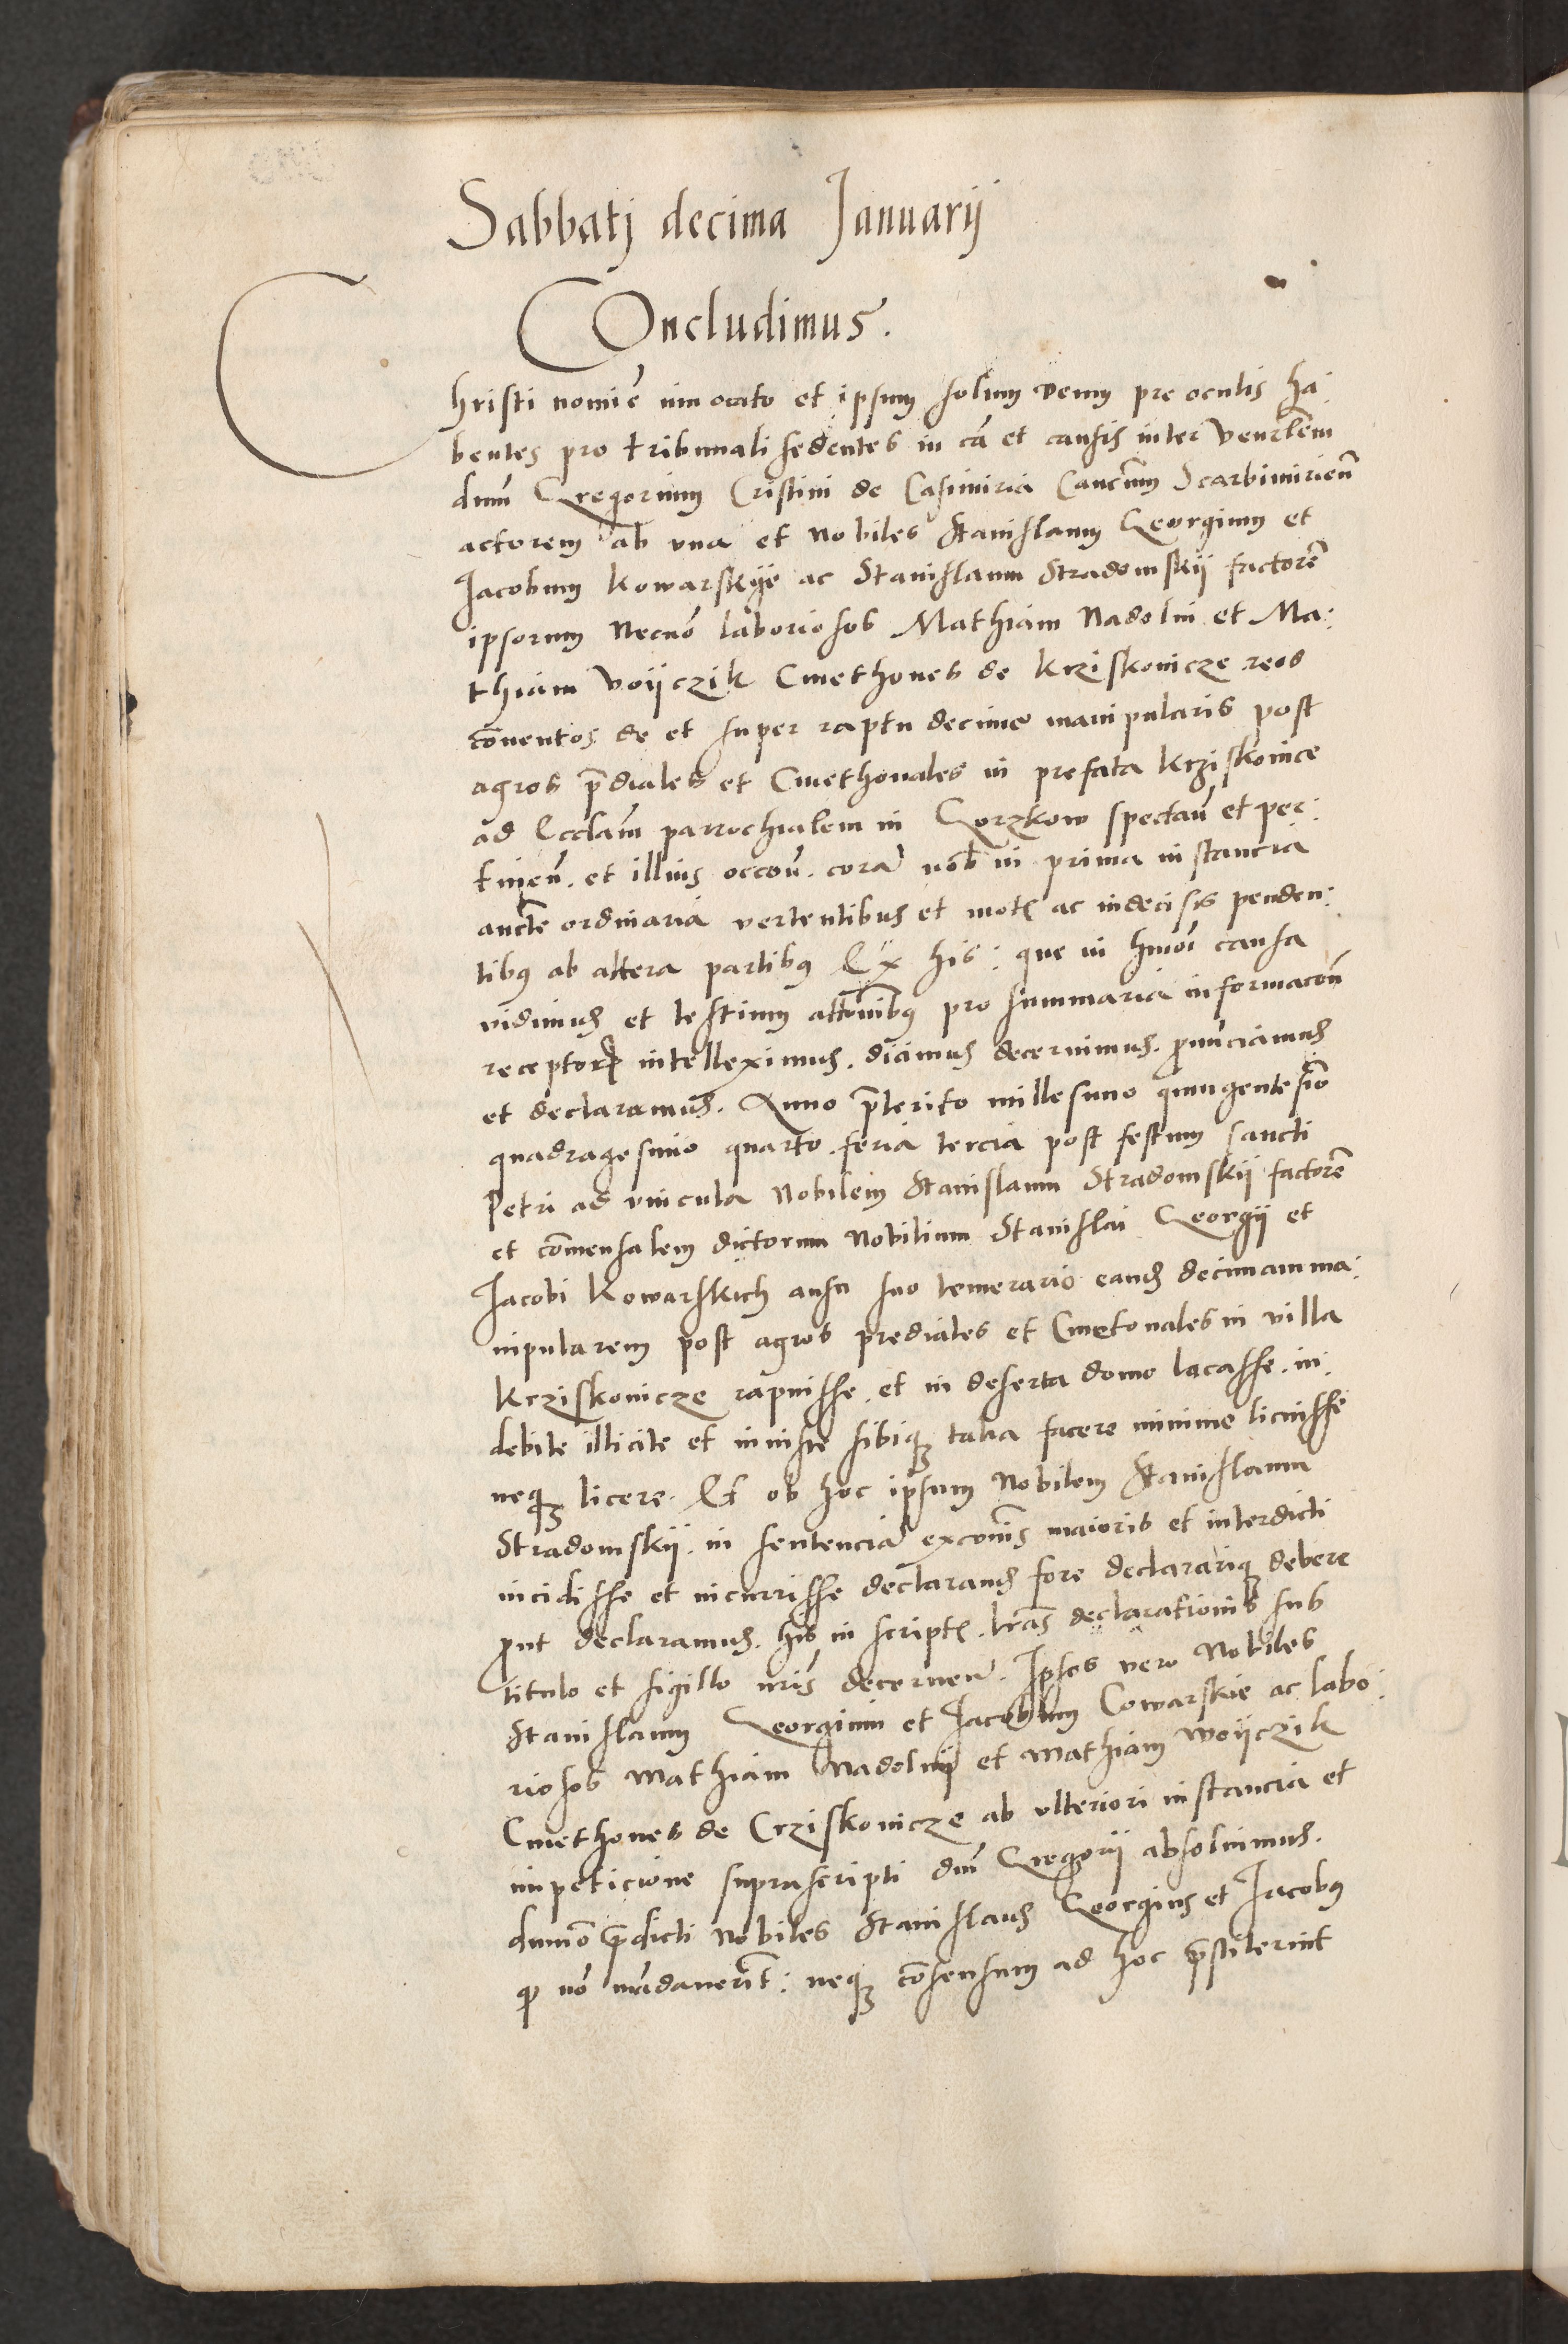 Sabbatj decima Januarij
COncludimus.
Christi noīe inuocato et ipsum solum Deum pre oculis ha:
bentes pro tribunali sedentes in cā et causis inter Venerlem
dnm̄ Gregorium Cristini de Casimiria Cancm̄ Scarbimirien̄
actorem ab vna et Nobiles Stanislaum Georgium et
Jacobum Kowarskye ac Stanislaum Stradomskij factorē
ipsorum Necnō laboriosos Mathiam Nadolni et Ma:
thiam Voijczik Cmethones de Krziskonicze reos
cōuentos de et super raptu decime manipularis post
agros p̄diales et Cmethonales in prefata Krziskonice
ad Eccl̄am parrochialem in Gorzkow spectan̄ et per:
tinen̄. et illius occon̄. corā nob̄ in prima instancia
auctē ordinaria vertentibus et mot̄ ac indecisis penden:
tibus ab altera partibus Ex his: que in hmōi causa
vidimus et testium attōnibus pro summaria informacōn̄
receptorꝝ intelleximus. dicimus decernimus. ꝓnunciamus
et declaramus. Anno p̄terito millesimo quingentesīo
quadragesimo quarto. feria tercia post festum sancti
Petri ad vincula Nobilem Stanislaum Stradomskij factorē
et cōmensalem dictorum Nobilium Stanislai Georgij et
Jacobi Kowarskich ausu suo temerario eandē decimam ma:
nipularem post agros prediales et Cmetonales in villa
Krziskonicze rapuisse. et in deserta domo locasse. in:
debite illicite et iniuste sibique talia facere minime licuisse
neque licere. Et ob hoc ipsum Nobilem Stanislaum
Stradomskij. in sentenciā excōnis maioris et interdicti
incidisse et incurrisse declarand̄ fore declararique debere
ꝓut declaramus. his in script̄. lr̄as declarationis sub
titulo et sigillo nr̄is decernen̄. Ipsos vero Nobiles
Stanislaum Georgium et Jacobum Cowarskie ac labo:
riosos Mathiam Nadolnij et Mathiam Woijczik
Cmethones de Crziskonicze ab vlteriori instancia et
impeticione suprascripti dnī Gregorij absoluimus.
dummō p̄dicti Nobiles Stanislaus Georgius et Jacobus
ꝙ nō mādauerint: neque cōsensum ad hoc p̄stiterint